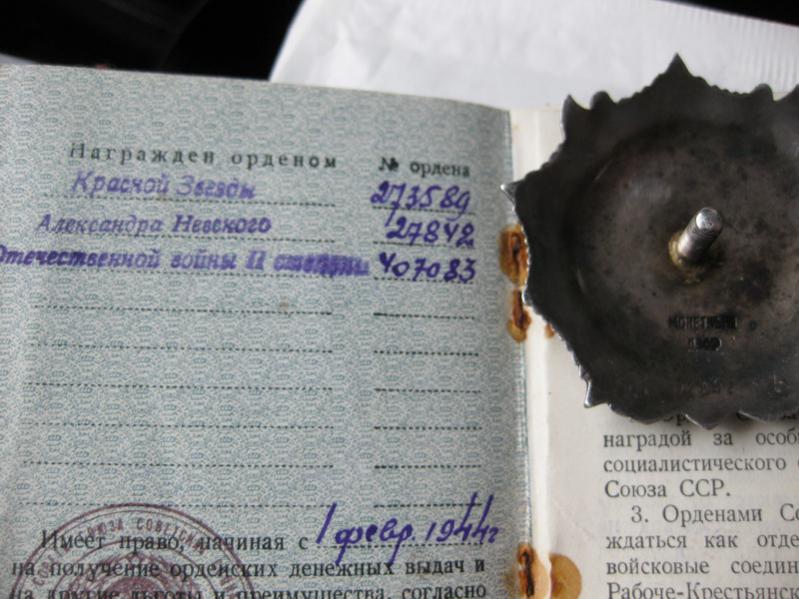 Награжден орденом № ордена
Красной Звезды 273589
Александра Невского 27842
Отечественной войны II степени 407083
СОЮЗА СОВЕТСК
Имеет право, начиная с 1 февр. 1944г
на получение орденских денежных выдач и
на другие льготы и преимущества, согласно
МОНЕТНЫЙ
ДВОР
наградой за особ
социалистического
Союза ССР.
3. Орденами Со
ждаться как отде
войсковые соедин
Рабоче-Крестьянск